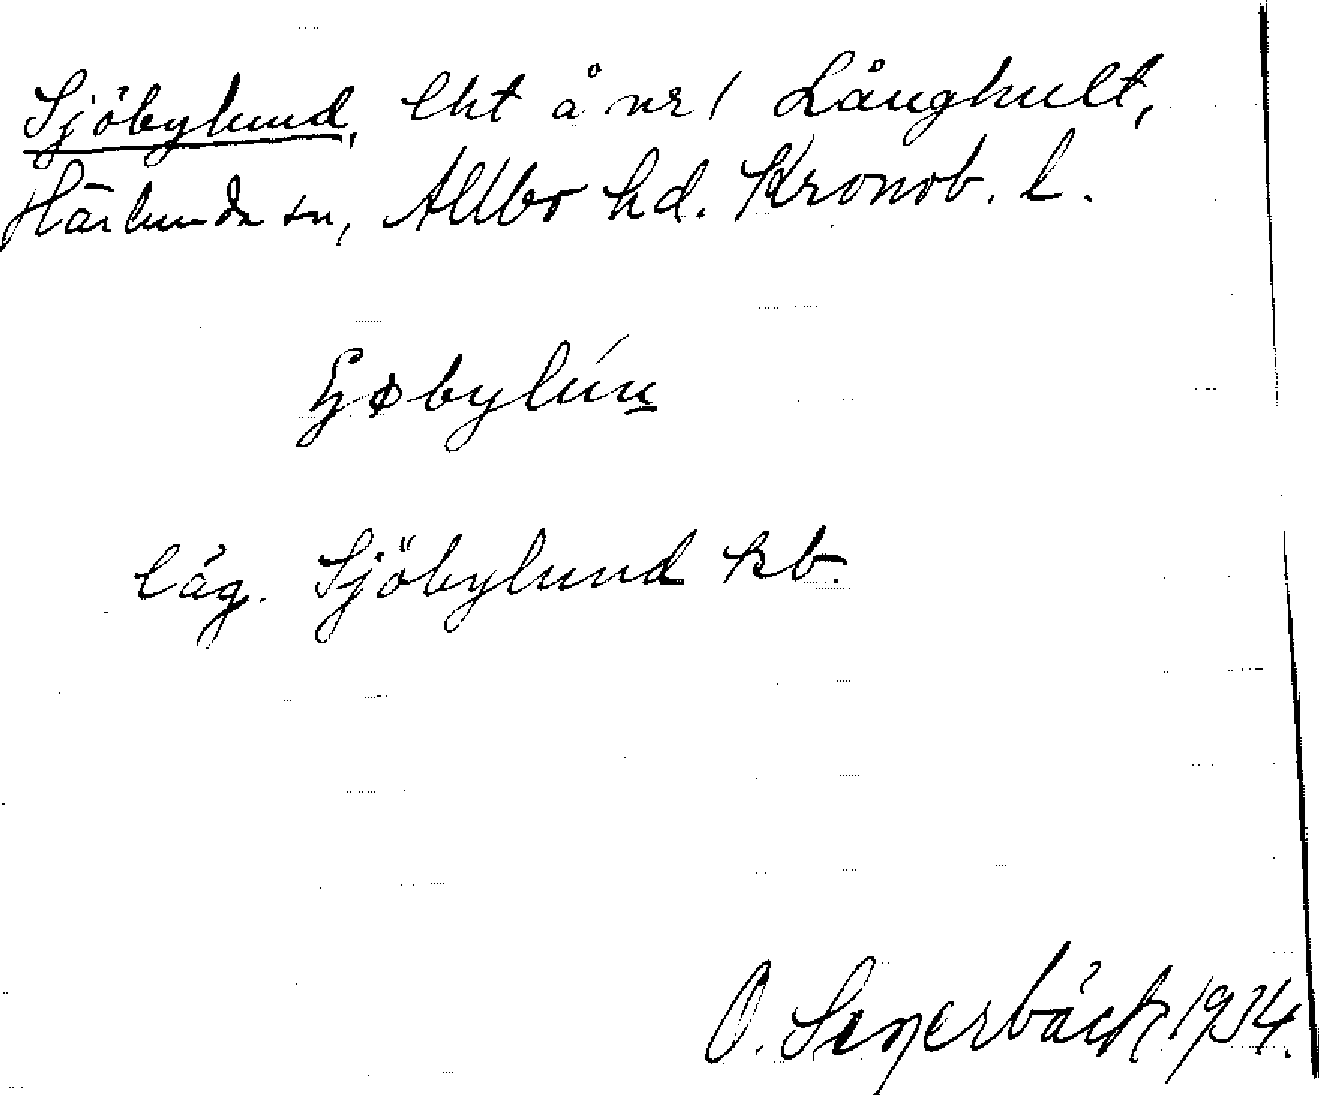 Sjöbylund, lht å nr 1 Långhult,
Härlunda sn, Allbo hd. Kronob. l.
låg. Sjöbylund kb.
O. Segerbäck 1934.